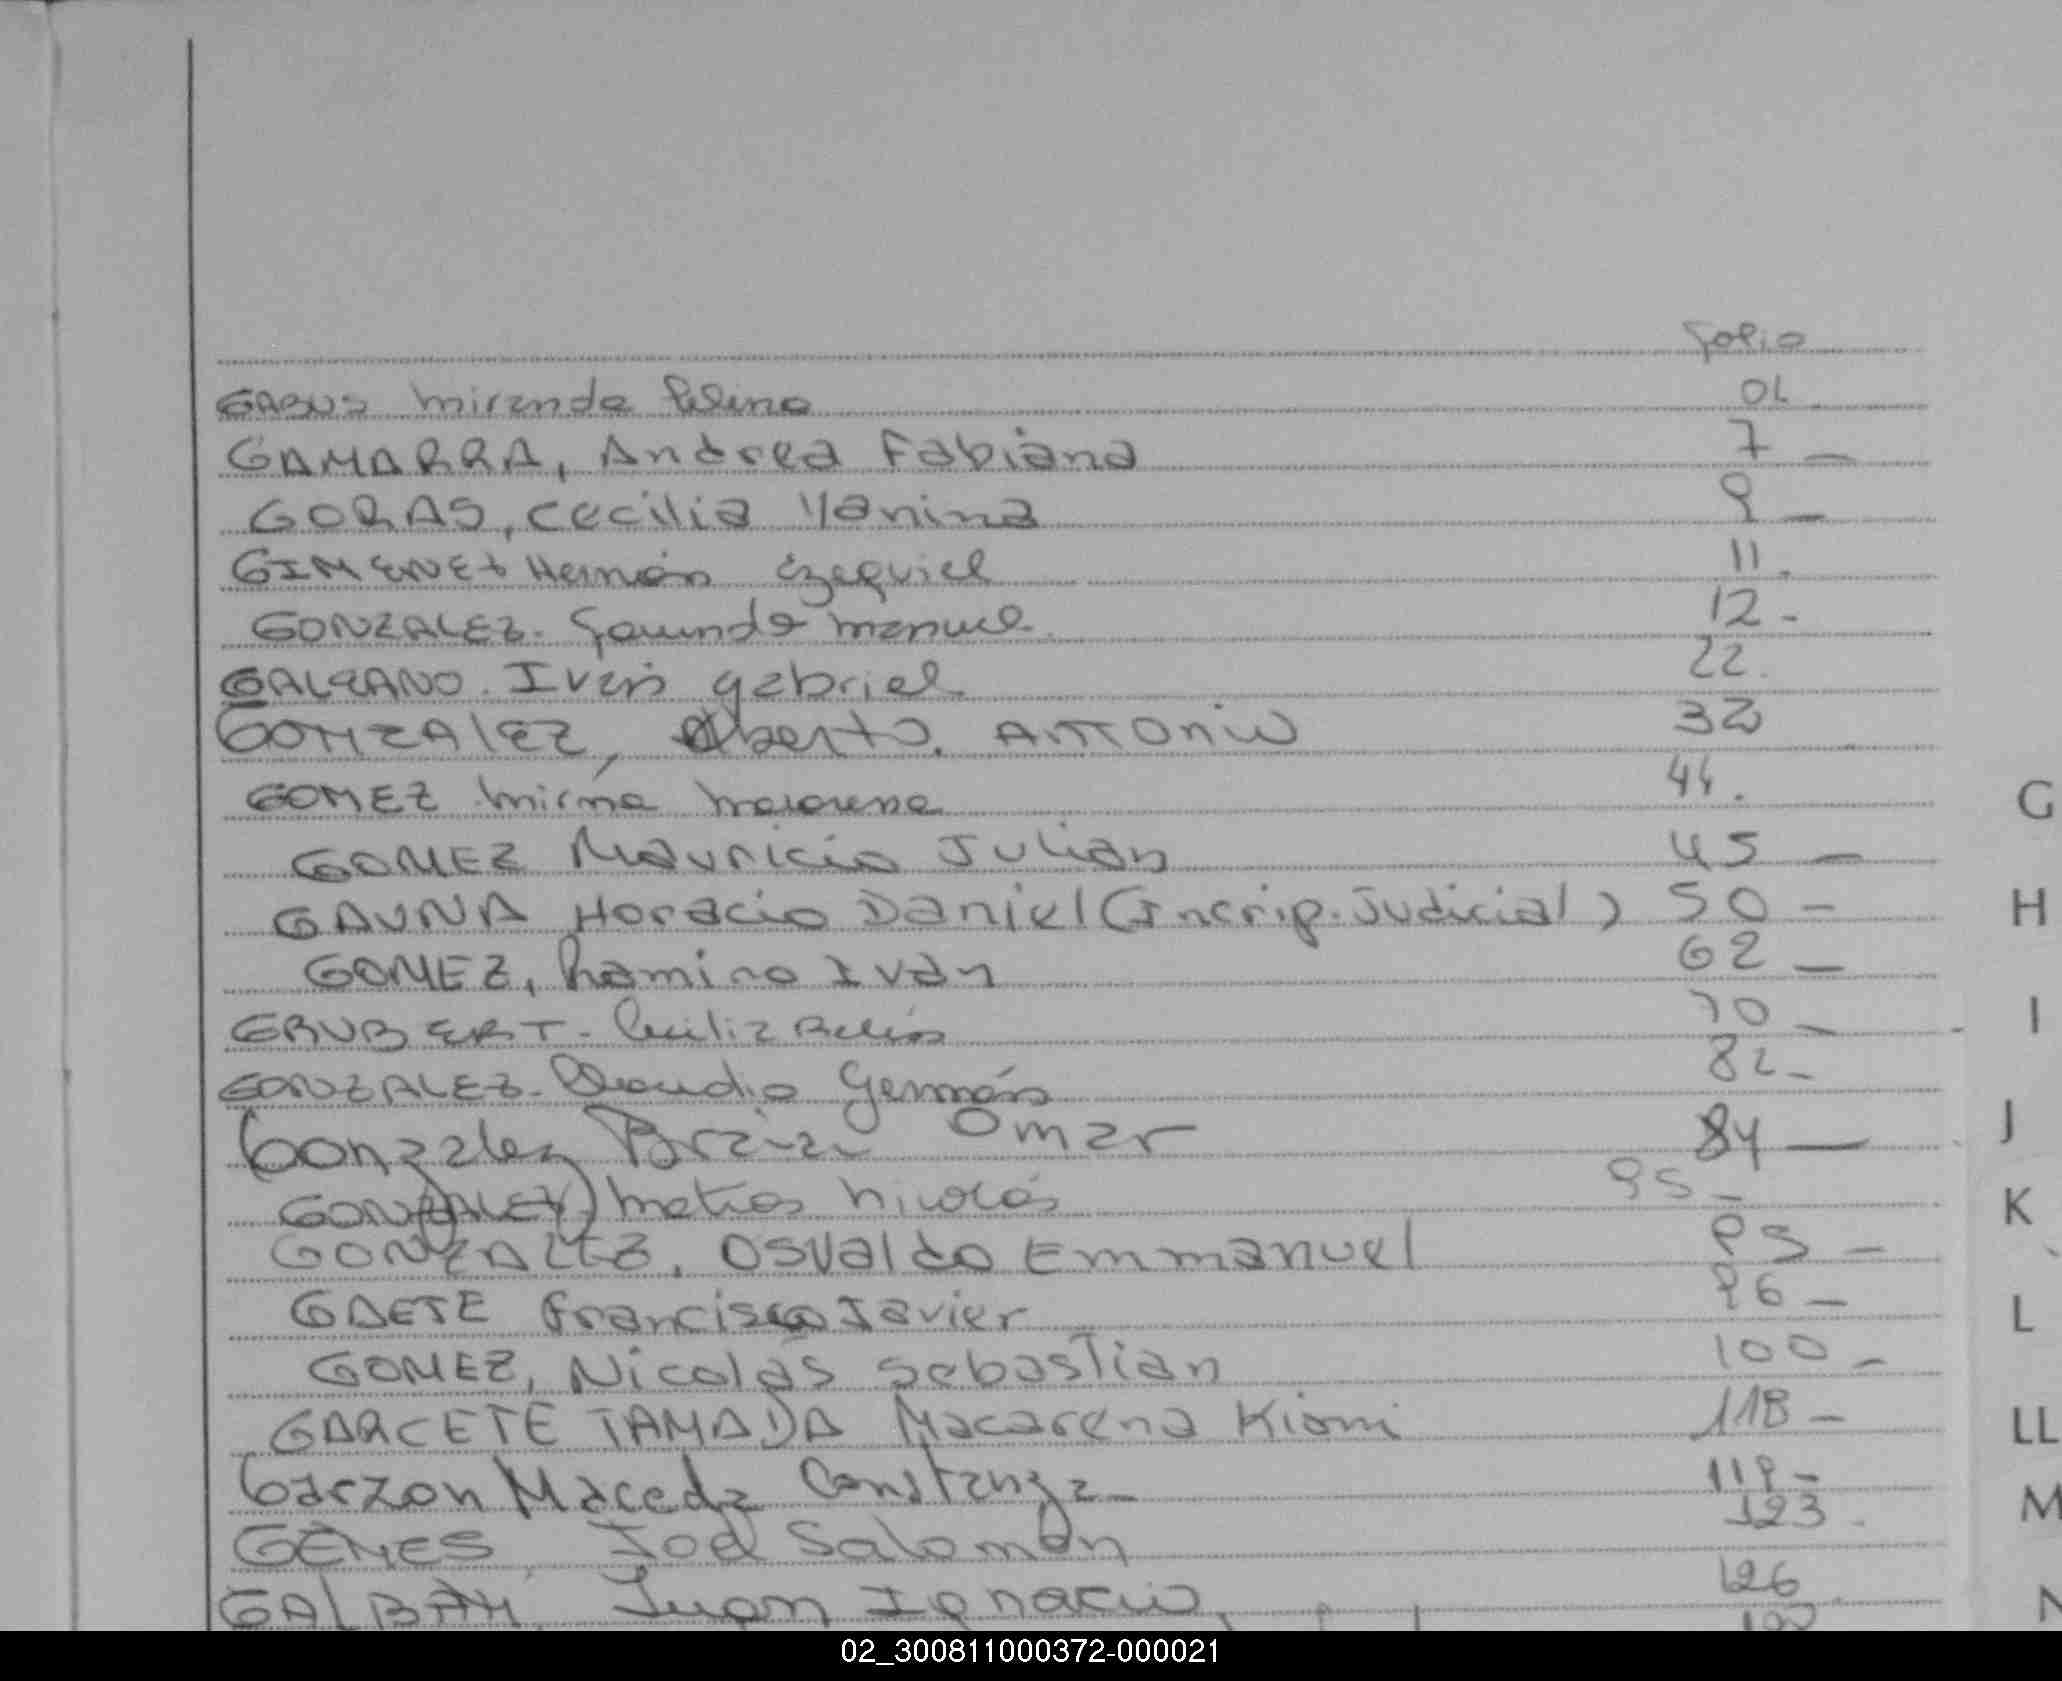 folio
GABUS Miranda Celina 02
GAMARRA, Andrea Fabiana 7 _
GORAS, Cecilia Yanina 9 _
GIMENEZ Hernán Ezequiel 11.
GONZALEZ. Facundo Manuel 12 -
GALEANO. Iván Gabriel 22.
GONZALEZ, Alberto. Antonio 32
GOMEZ Mirna Macarena 44.
GOMEZ Mauricio Julian 45 _
GAUNA Horacio Daniel (Incrip. Judicial) 50 -
GOMEZ, Ramiro Iván 62 _
GRUBERT - Cecilia Belén 70 _
GONZALEZ - Claudio Germán 82 -
Gonzalez Brian Omar 84 _
GONZALEZ) Matias Nicolás 95 -
GONZALEZ, Osvaldo Emmanuel 95 -
GAETE Francisco Javier 96 -
GOMEZ, Nicolás Sebastian 100 -
GARCETE TAMADA Macarena Kiomi 118 -
Garzon Maceda Constanza - 119 -
GENES Joel Salomón 123.
GALBAN Juan Ignacio, 126
G
H
I
J
K
L
LL
M
N
02_300811000372-000021